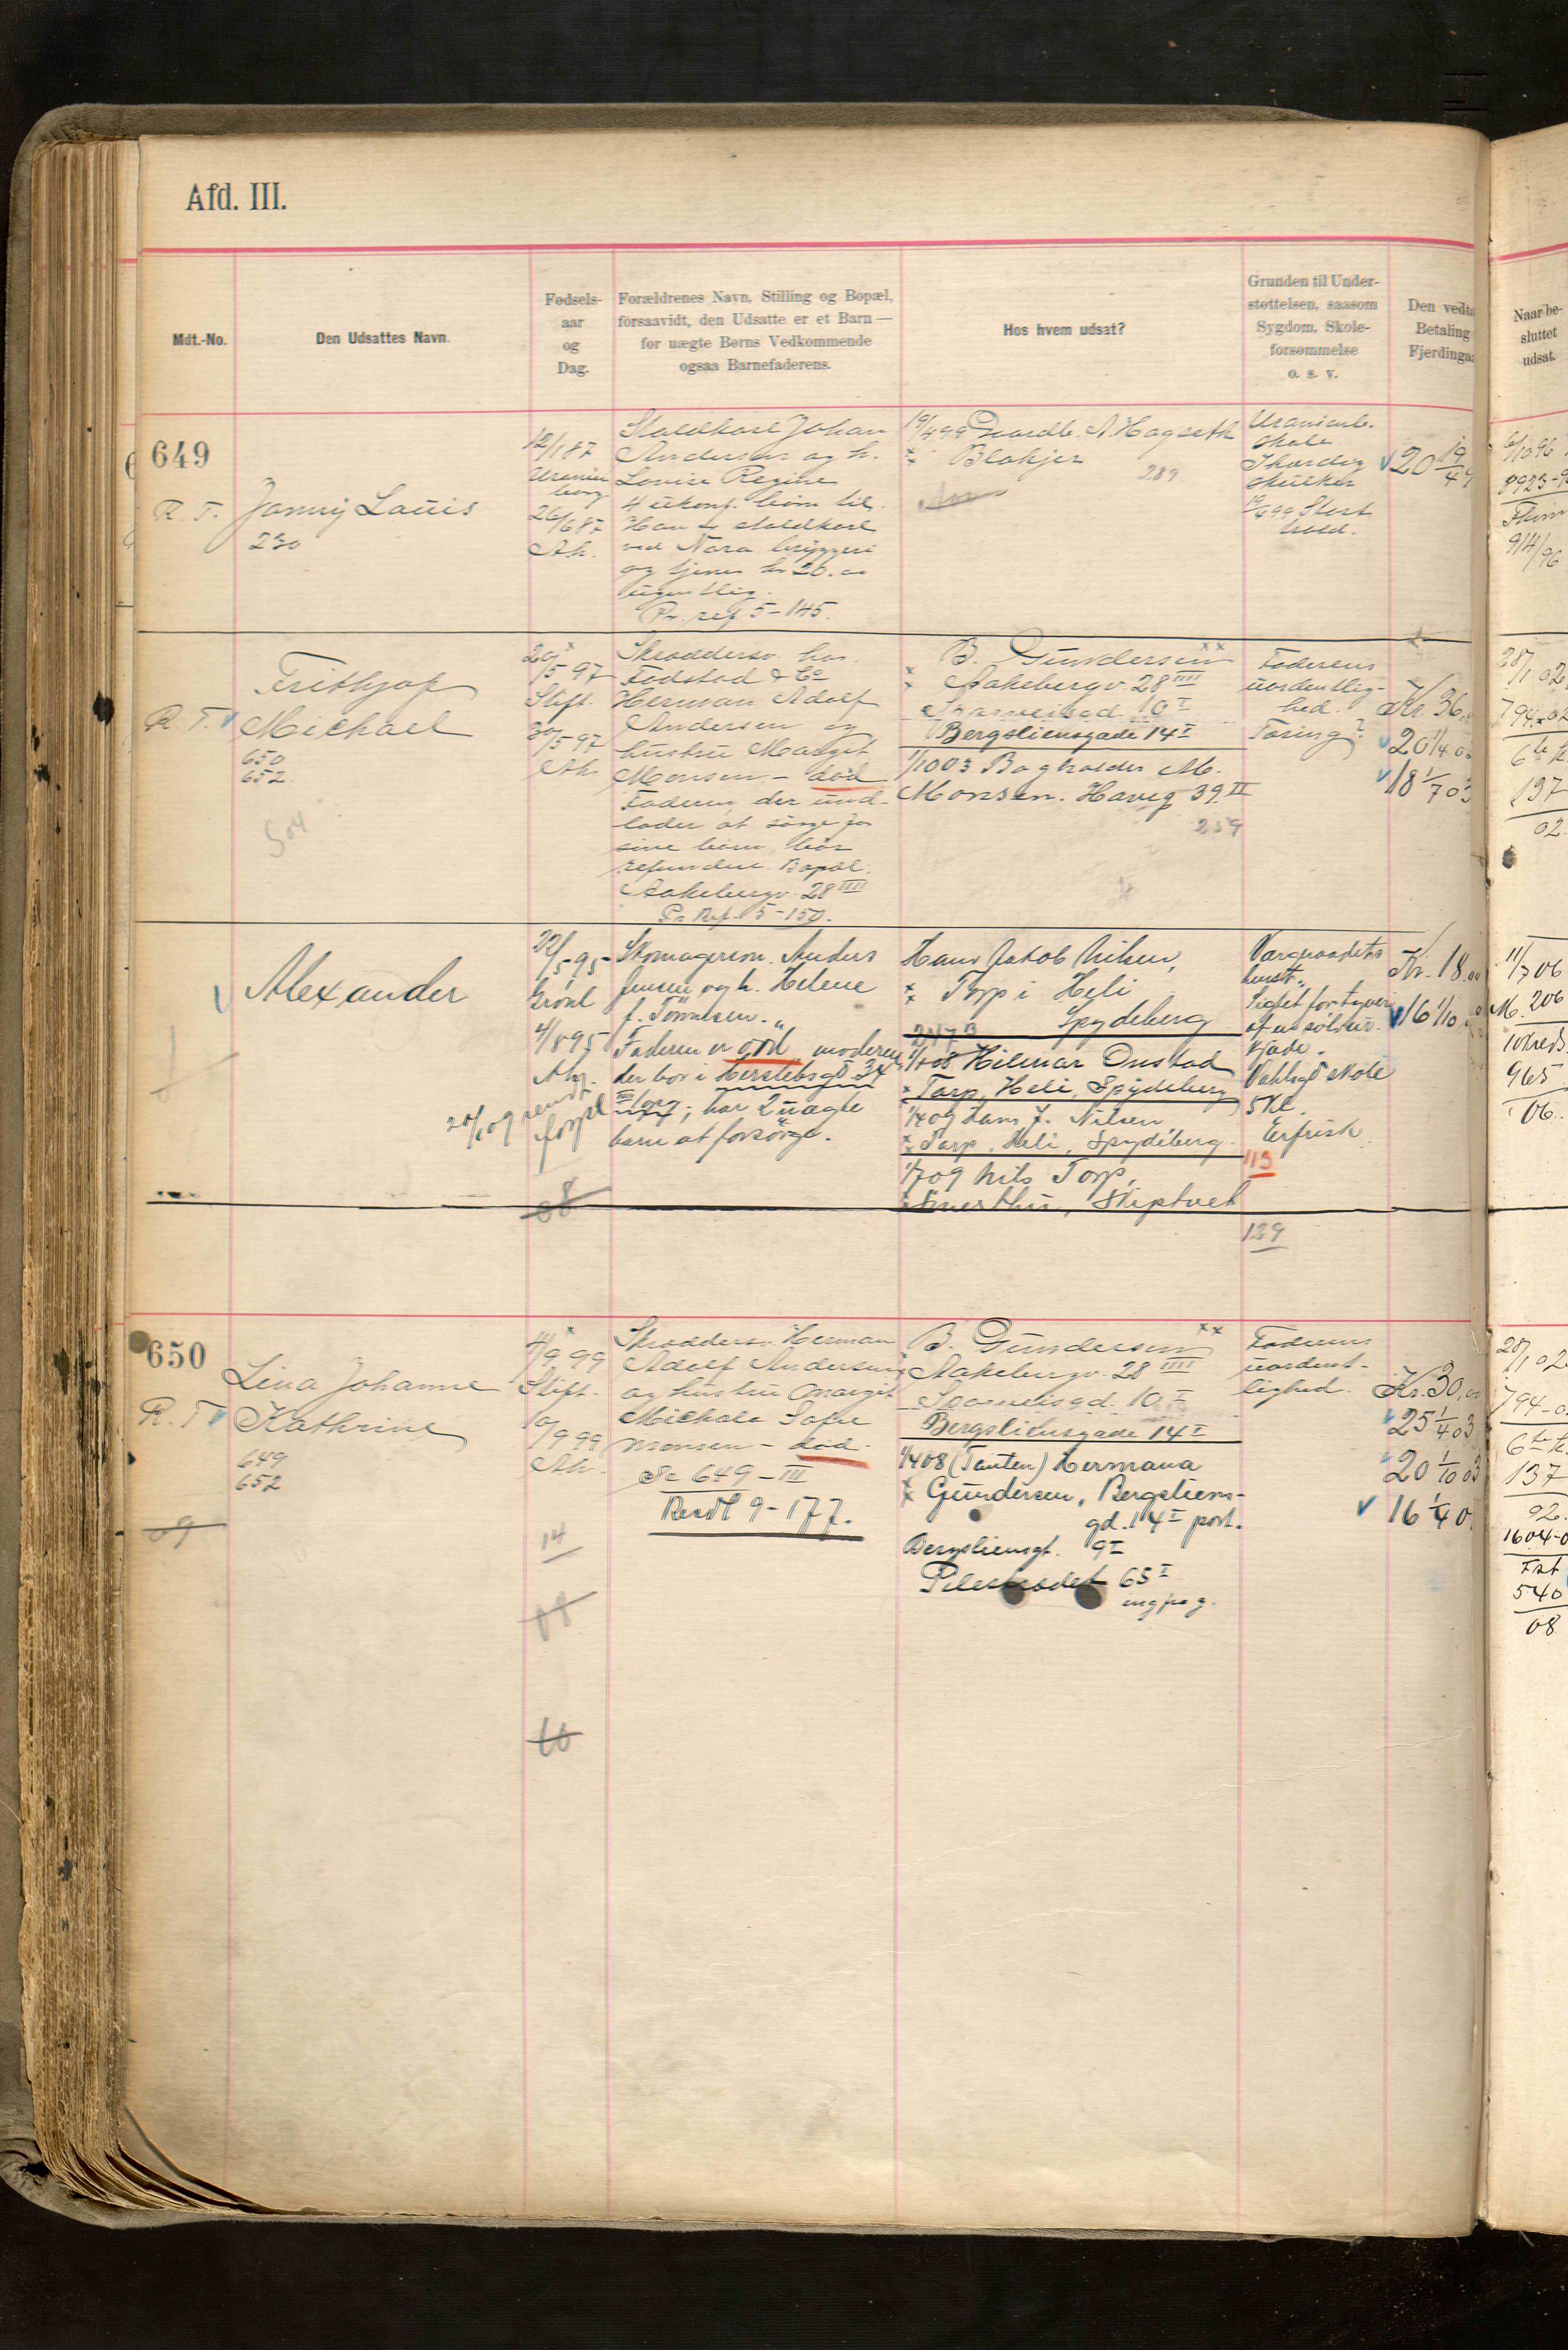 Afd. III.
Mdt.-No.
Den Udsattes Navn.
Fødsels-
aar
og
Dag.
Forældrenes Navn, Stilling og Bopæl,
forsaavidt, den Udsatte er et Barn —
for uægte Børns Vedkommende
ogsaa Barnefaderens.
Hos hvem udsat?
Grunden til Under-
støttelsen, saasom
Sygdom, Skole-
forsømmelse
o. s. v.
Den vedta
Betaling
Fjerdingaa
Naar be-
sluttet
udsat.
649
R. T.
Jonny Louis
230
12/1 87
Uranien
borg
26/6 87
Ah.
Staldkarl Johan
Andersen og h.
Lovise Regine
4 ukonf. børn til.
Han er staldkarl
ved Nora bryggeri
og tjener kr 20.00
ugentlig.
Pr. ref 5-145.
19/4 99 Gaardb. A. Hogseth
Blakjer
289
Uranienb.
skole.
Skurdog
skulker
19/6 99 Stort
hold.
20 19/4 9
6/10 96
8923-9
914/96
R. T.
Frithjof
Michael
650
652
504
20/5 97
Stift.
30/5 97
Ah.
Skrædersv. hos
Fodstad & Co
Herman Adolf
Andersen og
hustru Margit
Monsen - død
Faderen, der und-
lader at sørge for
sine børn, bør
refundere. Bopæl:
Aakebergv. 28 IIII
Pr. Ref. 5-150.
B. Gundersen
Aakebergv. 28 IIII
Sparveisgd. 10 I
Bergsliensgade 14 I
1/10 03 Bogholder M.
Monsen. Haveg 39 II
259
Faderens
uordentlig-
hed.
Tæring?
Kr. 36
20 1/4 0
18 1/7 03
28/1 02
794-02
137
02
Alexander
22/5-95
Grønl
4/8 95
Skomagersv. Anders
Jensen og h. Helene
f. Tønnesen.
Faderen er død moderen
der bor i Herslebsgd 34
har 2 uægte
barn at forsørge.
Hans Jakob Nilsen,
Torp i Heli
Spydeberg
1/1 08 Hilmar Onstad
Torp, Heli, Spydeberg
1/4 09 Hans J. Nilsen
Torp, Heli, Spydeberg
1/7 09 Nils Torp,
Skiptvet
Vargeraadets
Sigtet for tyveri
af en sølvur-
kjæde.
Vahlsgd skole
5 Kl.
Er frisk
113
129
Kr. 18.00
16 1/10
11/7 06
M. 206
965
06.
08
650
R. T.
Lina Johanne
Kathrine
649
652
09
14/9 99
Stift.
10/9 99
Ah.
14
08
10
Skræddersv. Herman
Adolf Andersen
og hustru Margit
Michala Sofie
Monsen - død.
Se 649-III
Resol 9-177.
B. Gundersen
Aakebergv. 28 IIII
Sparveisgd. 10 I
Bergsliensgade 14 I
1/4 08 (Tanten) Hermana
Gundersen, Bergsliens-
gd. 14 I port.
Bergsliensgt. 9 I
Pilestrædet 65 I
Faderens
uordent-
lighed.
Kr. 30.00
25 1/4 03
20 1/10 03
16 1/4 0
28/1 02
794-0
137
02.
1604-0
540
08